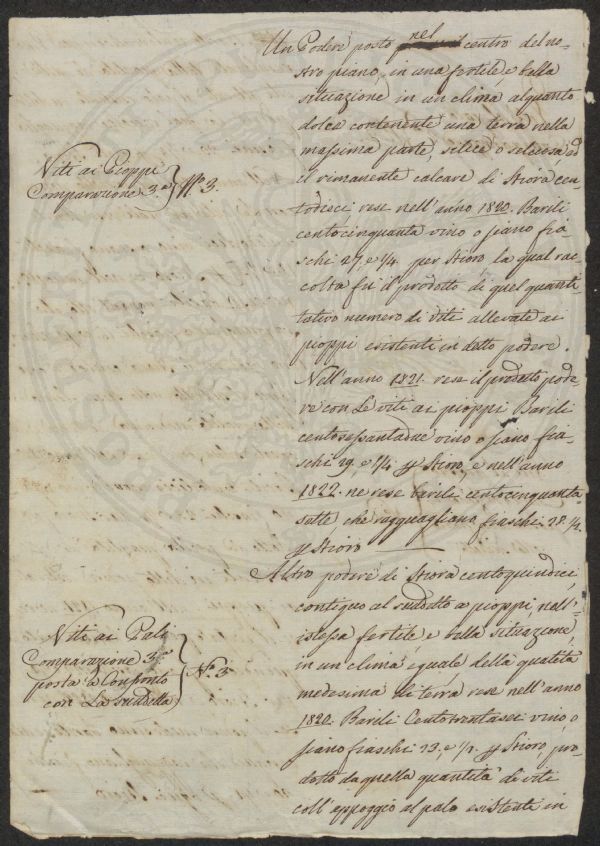 Un Podere posto nel centro del no-
stro piano, in una fertile, e bella
situazione in un clima alquanto
dolce contenente una terra nella
massima parte, silice o selciosa ed
il rimanente calcare di Stiora cen-
todieci rese nell'anno 1820. Barili
centocinquanta vino o siano fia-
schi 27, e 1/4 per Stioro la qual rac-
colta fu il prodotto di quel quanti-
tativo numero di viti allevate ai
pioppi esistenti in detto podere.
Nell'anno 1821. rese il predetto pode-
re con le viti ai pioppi Barili
centosessantadue vino o siano fia-
schi 29. e 1/4 p Stioro, e nell'anno
1822. ne rese barili centocinquanta
sette che ragguagliano fiaschi 28. 1/2
p Stioro
Viti ai Pioppi
Comparazione 3.a
N.o 3.
Altro podere di Stiora centoquindici
contiguo al suddetto a pioppi nell'
istessa fertile, e bella situazione,
in un clima eguale della qualità
medesima di terra rese nell'anno
1820. Barili Centotrentasei vino, o
siano fiaschi 23, e 1/2 p Stioro, pro-
dotto da quella quantità di viti
coll'appoggio al palo esistente in
Viti ai Pali
Comparazione 3.a
posta a Confronto
con La suddetta
N.o 3